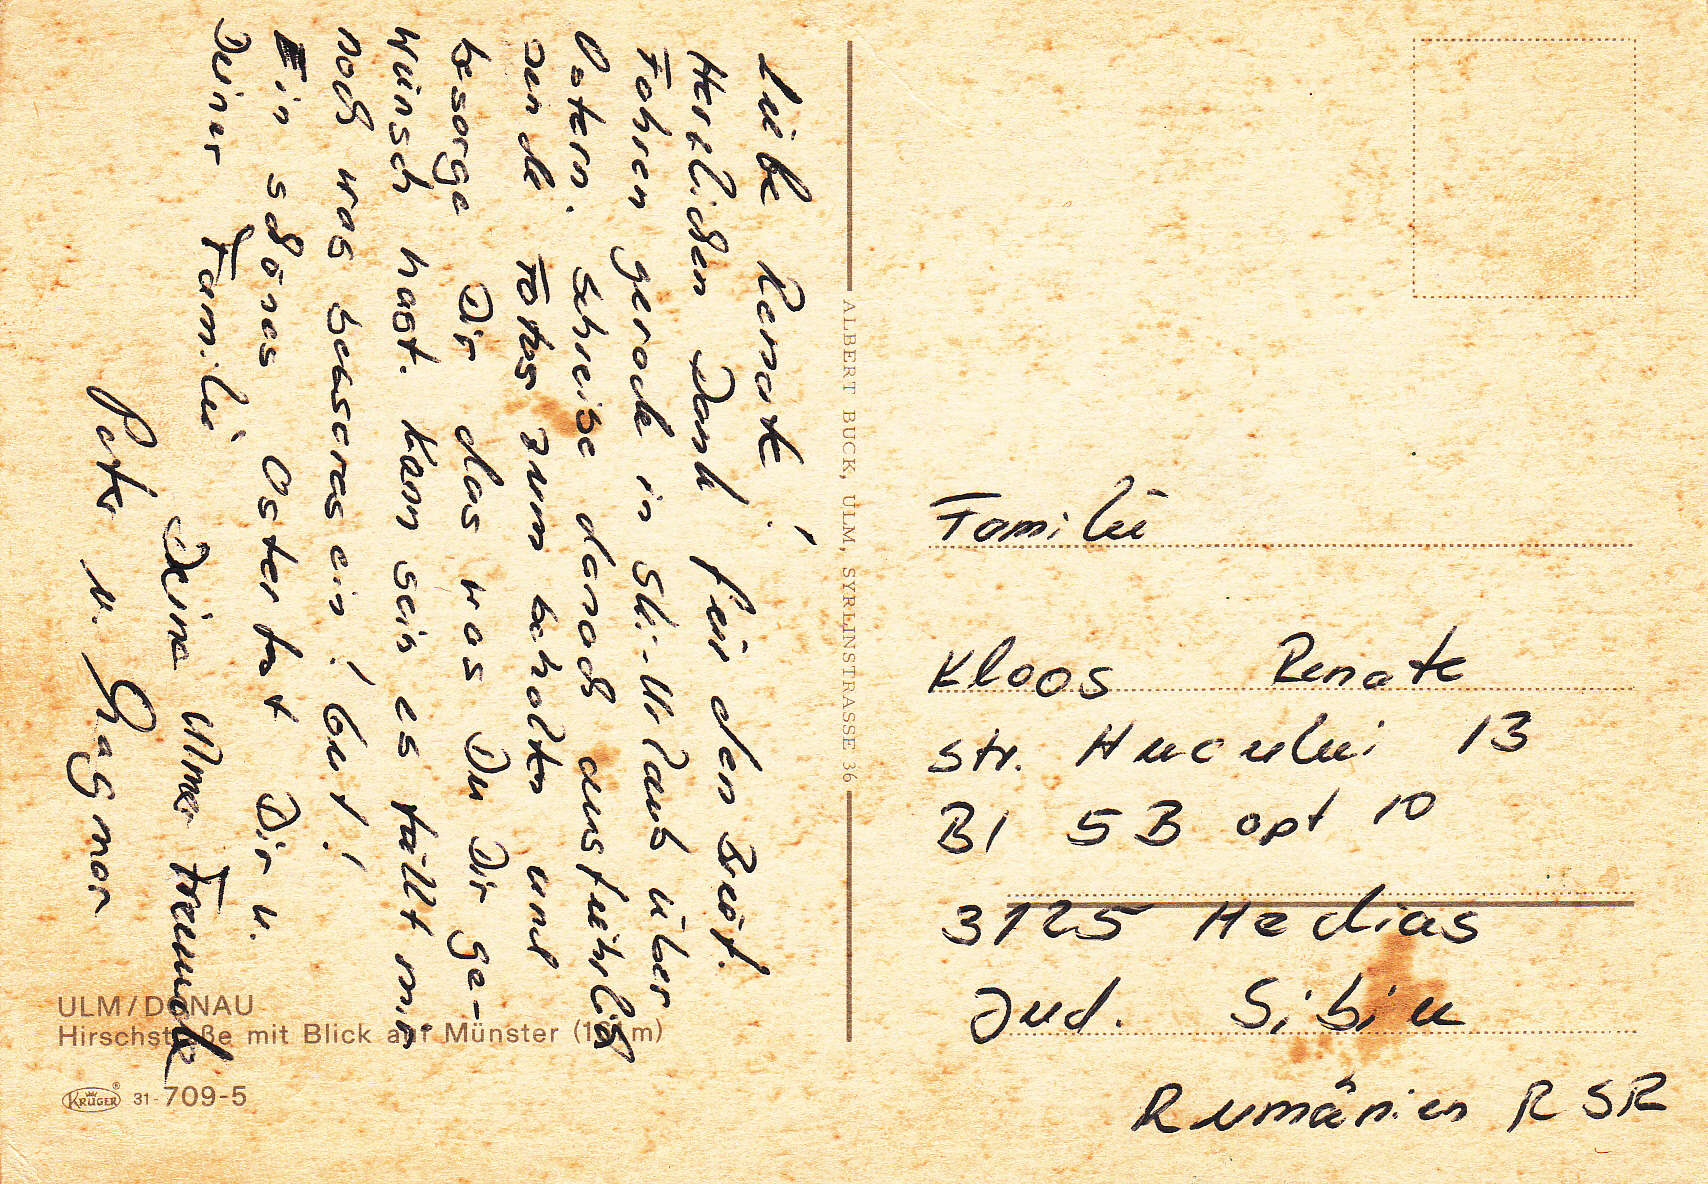 Liebe Renate!
Herzlichen Dank für den Brief.
Fahren gerade in Ski-Urlaub über
Ostern. Schreibe danach ausführlich
sende Fotos zum behalten und
besorge Dir das was Du Dir ge-
wünsch hast. Kann sein es fällt mir
noch was besseres ein! Gut!
Ein schönes Osterfest Dir u.
Deiner Familie
Deine Ulmer Freunde
Pete u. Dagmar
ALBERT BUCK, ULM, SYRLINSTRASSE 36
Familie
Kloos Renate
Str. Hucului 13
Bl 5B apt 10
3125 Medias
Jud. Sibiu
Rumänien RSR
ULM/DONAU
Hirschstraße mit Blick auf Münster (161 m)
KRÜGER® 31-709-5